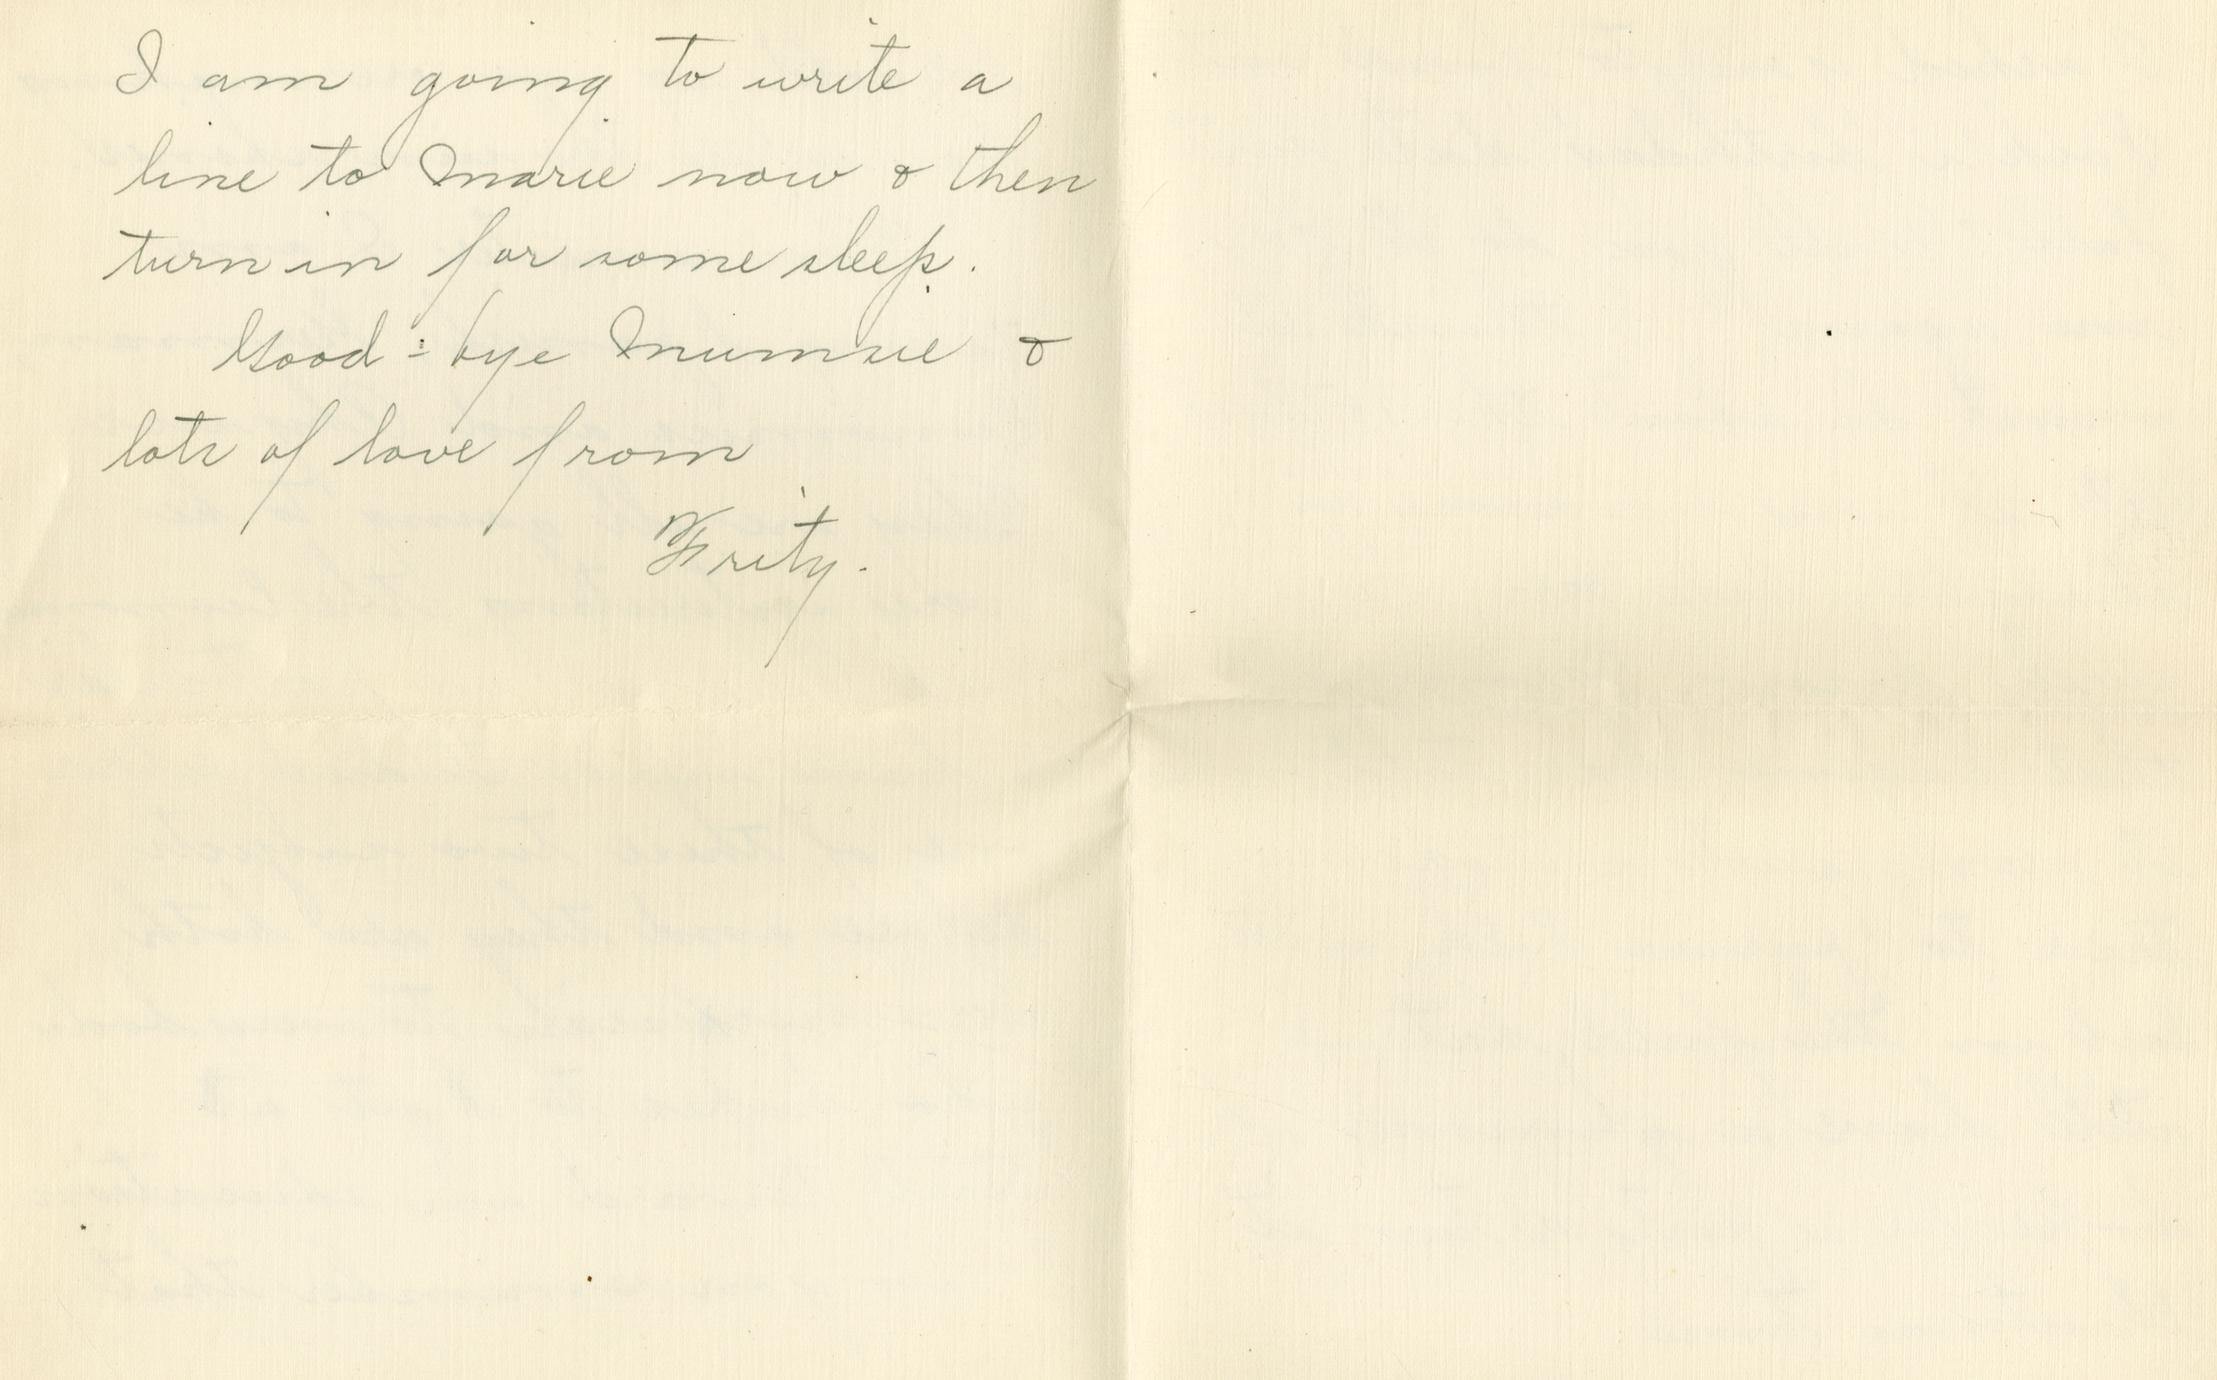 I am going to write a
line to Marie now & then
turn in for some sleep.
Good-bye Mumsie &
lots of love from
Fritz.